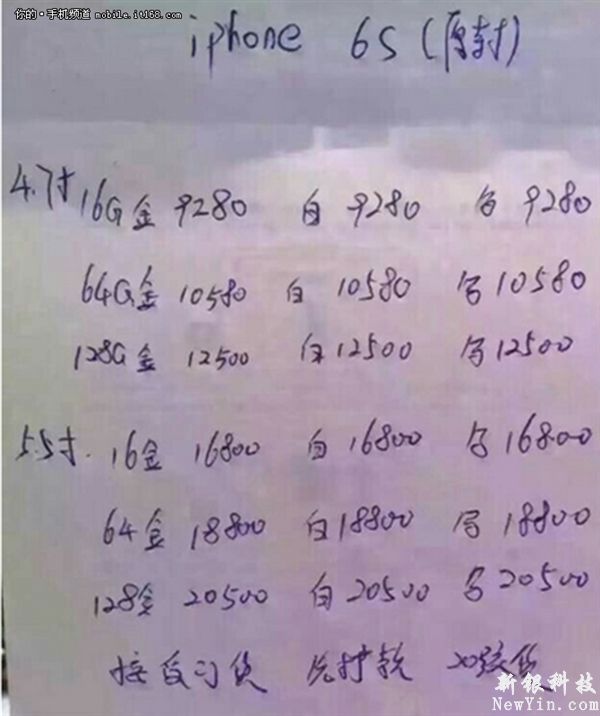 你的·手机频道 mobile.it168.com
iphone 6S (原封)
4.7寸 16G金 9280 白 9280 黑 9280
64G金 10580 白 10580 黑 10580
128G金 12500 白 12500 黑 12500
5.5寸. 16金 16800 白 16800 黑 16800
64金 18800 白 18800 黑 18800
128金 20500 白 20500 黑 20500
接受订货 先打款 20号货
新银科技
NewYin.com